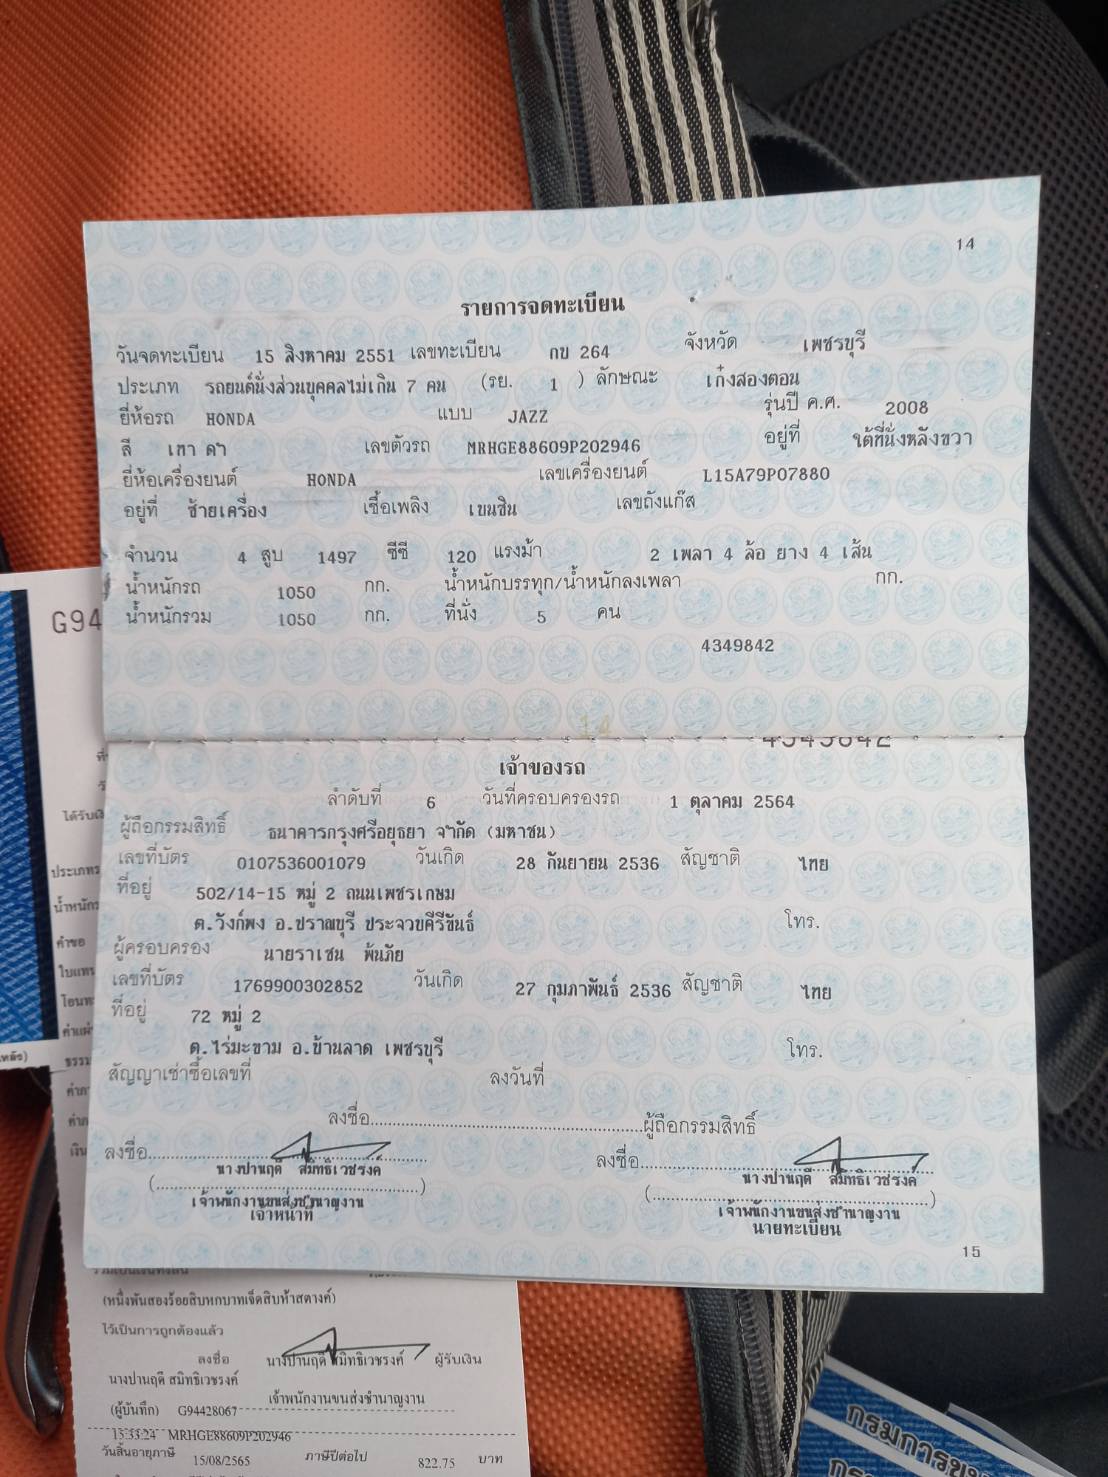 14
รายการจดทะเบียน
วันจดทะเบียน 15 สิงหาคม 2551 เลขทะเบียน กบ 264 จังหวัด เพชรบุรี
ประเภท รถยนต์นั่งส่วนบุคคลไม่เกิน 7 คน (รย. 1 ) ลักษณะ เก๋งสองตอน
ยี่ห้อรถ HONDA แบบ JAZZ รุ่นปี ค.ศ. 2008
สี เทา ดำ เลขตัวรถ MRHGE88609P202946 อยู่ที่ ใต้ที่นั่งหลังขวา
ยี่ห้อเครื่องยนต์ HONDA เลขเครื่องยนต์ L15A79P07880
อยู่ที่ ซ้ายเครื่อง เชื้อเพลิง เบนซิน เลขถังแก๊ส
จำนวน 4 สูบ 1497 ซีซี 120 แรงม้า 2 เพลา 4 ล้อ ยาง 4 เส้น
น้ำหนักรถ 1050 กก. น้ำหนักบรรทุก/น้ำหนักลงเพลา กก.
น้ำหนักรวม 1050 กก. ที่นั่ง 5 คน
4349842
4349842
เจ้าของรถ
ลำดับที่ 6 วันที่ครอบครองรถ 1 ตุลาคม 2564
ผู้ถือกรรมสิทธิ์ ธนาคารกรุงศรีอยุธยา จำกัด (มหาชน)
เลขที่บัตร 0107536001079 วันเกิด 28 กันยายน 2536 สัญชาติ ไทย
ที่อยู่ 502/14-15 หมู่ 2 ถนนเพชรเกษม
ต.วังก์พง อ.ปราณบุรี ประจวบคีรีขันธ์ โทร.
ผู้ครอบครอง นายราเชน พ้นภัย
เลขที่บัตร 1769900302852 วันเกิด 27 กุมภาพันธ์ 2536 สัญชาติ ไทย
ที่อยู่ 72 หมู่ 2
ต.ไร่มะขาม อ.บ้านลาด เพชรบุรี โทร.
สัญญาเช่าซื้อเลขที่ ลงวันที่
ลงชื่อ........................................ผู้ถือกรรมสิทธิ์
ลงชื่อ........................................ ลงชื่อ........................................
นางปานฤดี สมิทธิเวชรงค์ นางปานฤดี สมิทธิเวชรงค์
(........................................) (........................................)
เจ้าพนักงานขนส่งชำนาญงาน เจ้าพนักงานขนส่งชำนาญงาน
เจ้าหน้าที่ นายทะเบียน
15
G94
ได้รับเงิ
ประเภท
น้ำหนัก
คำขอ
ใบแทน
โอนท
(หนึ่งพันสองร้อยสิบหกบาทเจ็ดสิบห้าสตางค์)
ไว้เป็นการถูกต้องแล้ว
ลงชื่อ นางปานฤดี สมิทธิเวชรงค์ ผู้รับเงิน
นางปานฤดี สมิทธิเวชรงค์
เจ้าพนักงานขนส่งชำนาญงาน
(ผู้บันทึก) G94428067
15:33:24 MRHGE88609P202946
วันสิ้นอายุภาษี 15/08/2565 ภาษีปีต่อไป 822.75 บาท
กรมการขน